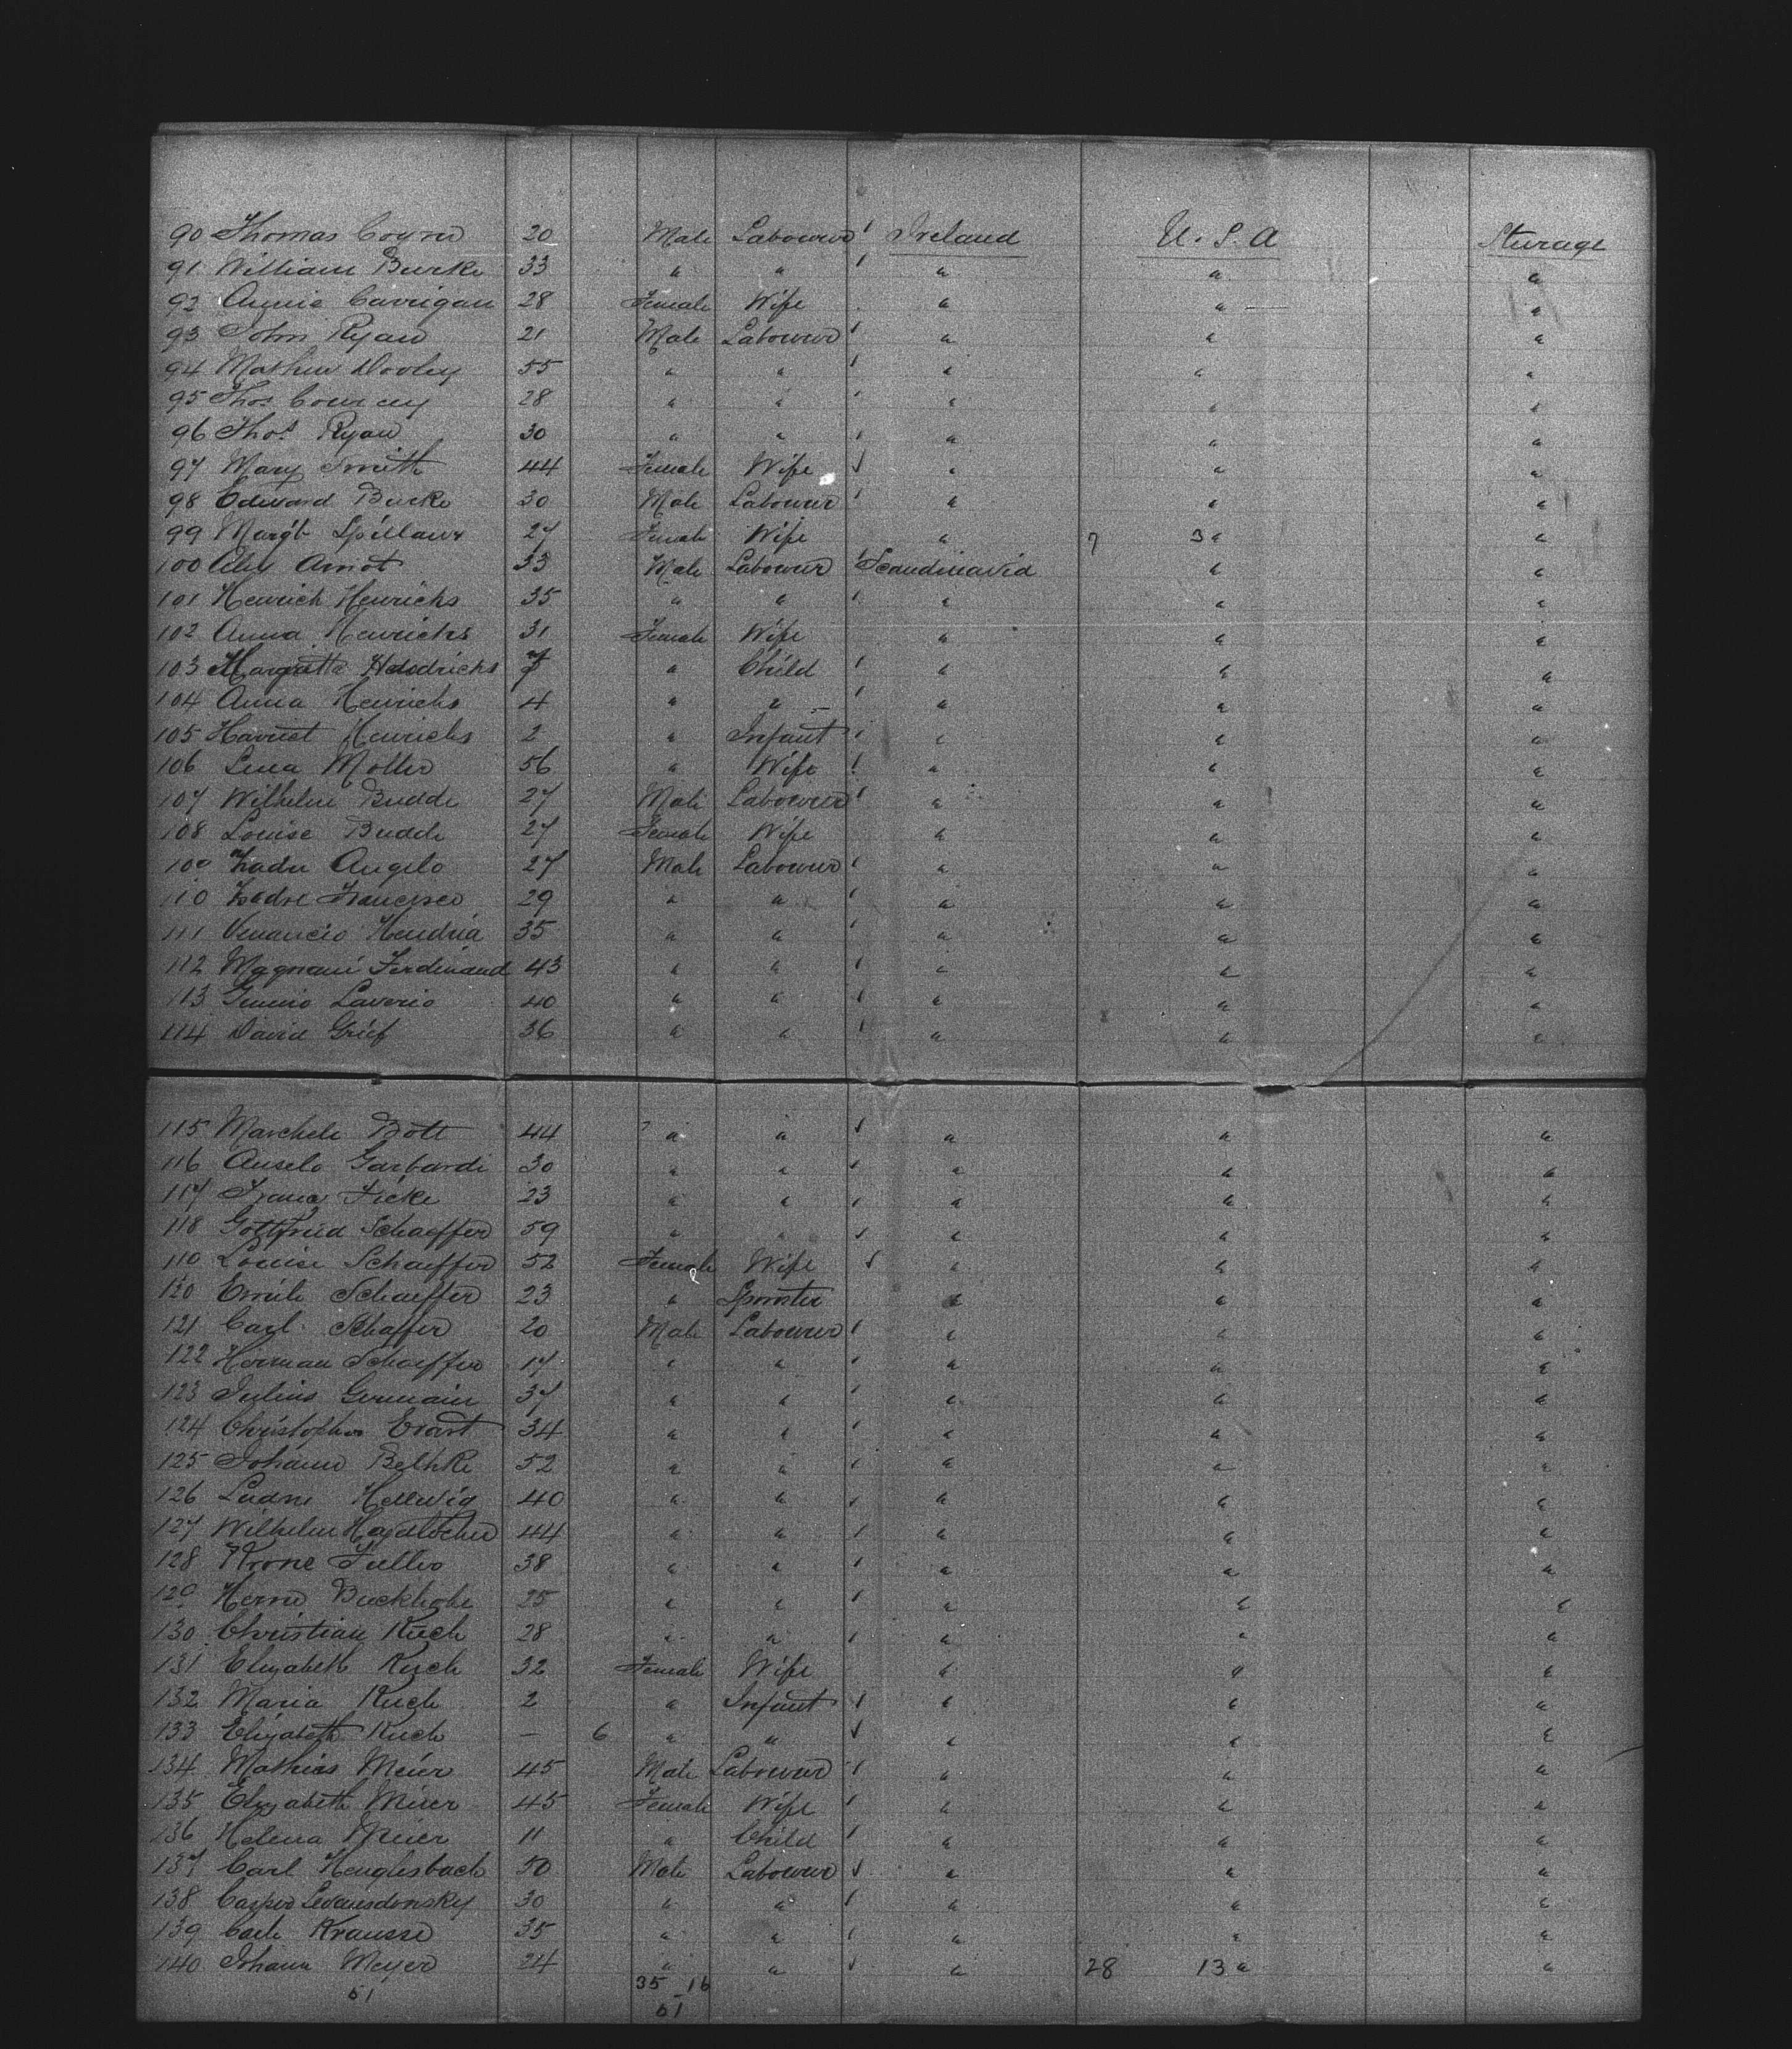 90 Thomas Coyne 20 Male Labourer Ireland U.S.A Sturage
91 William Burke 33 " " " " "
92 Annie Carrigan 28 Female Wife " " "
93 John Ryan 21 Male Labourer " " "
94 Mathew Dooley 55 " " " " "
95 Thos 28 " " " " "
96 Thos Ryan 30 " " " " "
97 Mary Smith 44 Female Wife " " "
98 Edward Burke 30 Male Labourer " " "
99 Margt Spillane 27 Female Wife " 7 3 " "
100 Alex Arnot 33 Male Labourer Scandinavia " "
101 Henrich Henrichs 35 " " " " "
102 Anna Henrichs 31 Female Wife " " "
103 7 " Child " " "
104 Anna Henrichs 4 " " " " "
105 Harriet Henrichs 2 " Infant " " "
106 Lena Moller 56 " Wife " " "
107 Wilhelm Budde 27 Male Labourer " " "
108 Louise Budde 27 Female Wife " " "
109 Angelo 27 Male Labourer " " "
110 Francesco 29 " " " " "
111 Venancio Hendria 35 " " " " "
112 Magnani Ferdinand 43 " " " " "
113 Laverio 40 " " " " "
114 David Grief 36 " " " " "
115 Marchele Bott 44 " " " " "
116 Anselo Garbardi 30 " " " " "
117 Franz Ficke 23 " " " " "
118 Gottfried Schaeffer 59 " " " " "
119 Louise Schaeffer 52 Female Wife " " "
120 Emile Schaeffer 23 " Spinster " " "
121 Carl Schaffer 20 Male Labourer " " "
122 Herman Schaeffer 17 " " " " "
123 Julius Germain 37 " " " " "
124 Christopher Evart 34 " " " " "
125 Johann Bethke 52 " " " " "
126 Hellwig 40 " " " " "
127 Wilhelm 44 " " " " "
128 Krone Fuller 38 " " " " "
129 25 " " " " "
130 Christian Kuch 28 " " " " "
131 Elizabeth Kuch 32 Female Wife " " "
132 Maria Kuch 2 " Infant " " "
133 Elizabeth Kuch — 6 " " " " "
134 Mathias Meier 45 Male Labourer " " "
135 Elizabeth Meier 45 Female Wife " " "
136 Helena Meier 11 " Child " " "
137 Carl Henglesbach 50 Male Labourer " " "
138 Casper 30 " " " " "
139 Carl Krausse 35 " " " " "
140 Johann Meyer 24 " " " 28 13 " "
51 35 16
51